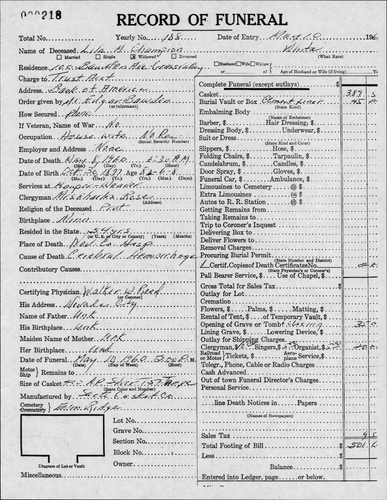 000218
RECORD OF FUNERAL
Total No. Yearly No. 138 Date of Entry May 10 196
Name of Deceased Lila H. Champion White
Married Single Widowed Divorced (What Race)
Residence Grass Valley Husband Wife Widow
of Age of Husband or Wife (if living) Yrs.
Charge to Trust Acct
Address Bank of America
Order given by Mr. Edgar Dowden
How Secured Phone
If Veteran, Name of War No
Occupation House wife No Rec
(Social Security Number)
Employer and Address None
Date of Death May 8 1960 6:30 P.M.
Date of Birth Oct. 20 1877 Age 82-6-18
Services at Hooper-Weaver
Clergyman Rose
Religion of the Deceased Prot.
Birthplace
Resided in the State 34 yrs
(or U. S. or City or County)
Place of Death Hosp
Cause of Death Cerebral Hemorrhage
Contributory Causes
Certifying Physician Walter W. Reed
His Address Nevada City
Name of Father Unk
His Birthplace Unk
Maiden Name of Mother Unk
Her Birthplace Unk
Date of Funeral May 10 1960 2:00 P.M.
Motor Ship Remains to
Size of Casket
(State Color and Number)
Manufactured by Casket Co
Cemetery Crematory Elm Ridge
Lot No.
Grave No.
Section No.
Block No.
Owner
Diagram of Lot or Vault
Miscellaneous
Complete Funeral (except outlays) $
Casket $ 387
Burial Vault or Box Cement liner 45
(State Kind)
Embalming Body $
(Name of Embalmer)
Barber, $ Hair Dressing, $
Dressing Body, $ Underwear, $
Suit or Dress $
(State Kind and Color)
Slippers, $ Hose, $ $
Folding Chairs, $ Tarpaulin, $
Candelabrum, $ Candles, $
Door Spray, $ Gloves, $ $
Funeral Car, $ Ambulance, $ $
Limousines to Cemetery @ $
Extra Limousines @ $
Autos to R. R. Station @ $
Getting Remains from $
Taking Remains to $
Trip to Coroner's Inquest $
Delivering Box to $
Deliver Flowers to $
Removal Charges $
Procuring Burial Permit $
(State Number and District)
1 Certif. Copies of Death Certificates No. $
(State Physician's or Coroner's)
Pall Bearer Service, $ Use of Chapel, $
Gross Total for Sales Tax $
Outlay for Lot $
Cremation $
Flowers, $ Palms, $ Matting, $
Rental of Tent, $ of Temporary Vault, $
Opening of Grave or Tomb 35 0
Lining Grave, $ Lowering Device, $
Outlay for Shipping Charges $
Clergyman, $ Singers, $ Organist, $
Railroad or Motor Tickets, $ Aero Service, $
Telegr., Phone, Cable or Radio Charges $
Cash Advanced $
Out of town Funeral Director's Charges $
Personal Service $
line Death Notices in Papers $
(Names of Newspapers)
Sales Tax $
Total Footing of Bill $ 501
Less $
Balance $
Entered into Ledger, page or below